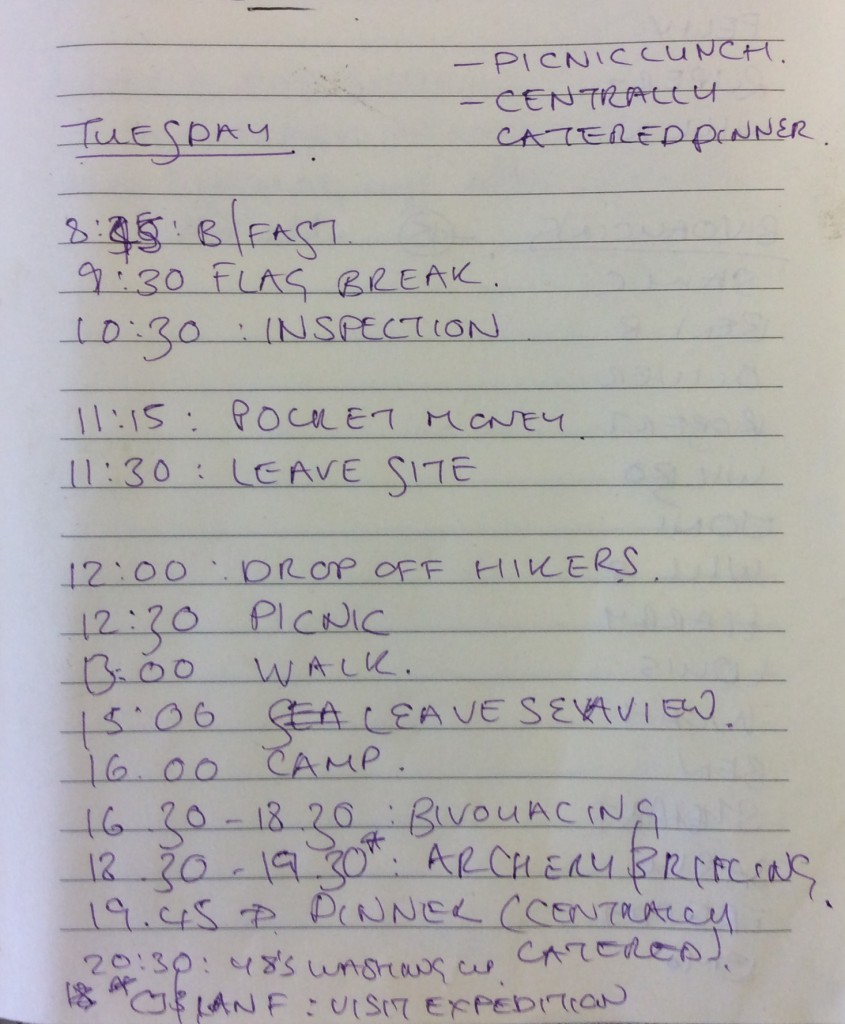 - PICNIC LUNCH.
- CENTRALLY
CATERED DINNER.
TUESDAY.
8:45: B/FAST.
9:30 FLAG BREAK.
10:30 : INSPECTION
11:15: POCKET MONEY.
11:30: LEAVE SITE
12:00: DROP OFF HIKERS.
12:30 PICNIC
13:00 WALK.
15:00 LEAVE SEAVIEW.
16.00 CAMP.
16.30 - 18.30 : BIVOUACING
18.30 - 19.30*: ARCHERY/BRIEFING.
19.45 → DINNER (CENTRALLY
CATERED).
20:30: 48'S WASHING UP.
* : VISIT EXPEDITION